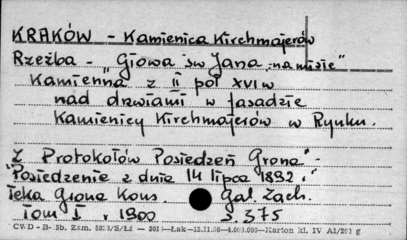 KRAKÓW - Kamienica Kirchmajerów
Rzeźba - "Głowa św Jana na misie"
Kamienna z II poł XVI w
nad drzwiami w fasadzie
Kamienicy Kirchmajerów w Rynku.
"Z Protokołów Posiedzeń Grona" -
"Posiedzenie z dnia 14 lipca 1892."
Teka Grona Kons. Gal. Zach.
Tom I r. 1900 s 375
CWD - B- 5b. Zam. Łak 4.000.000 Karton kl. IV A1/200 g